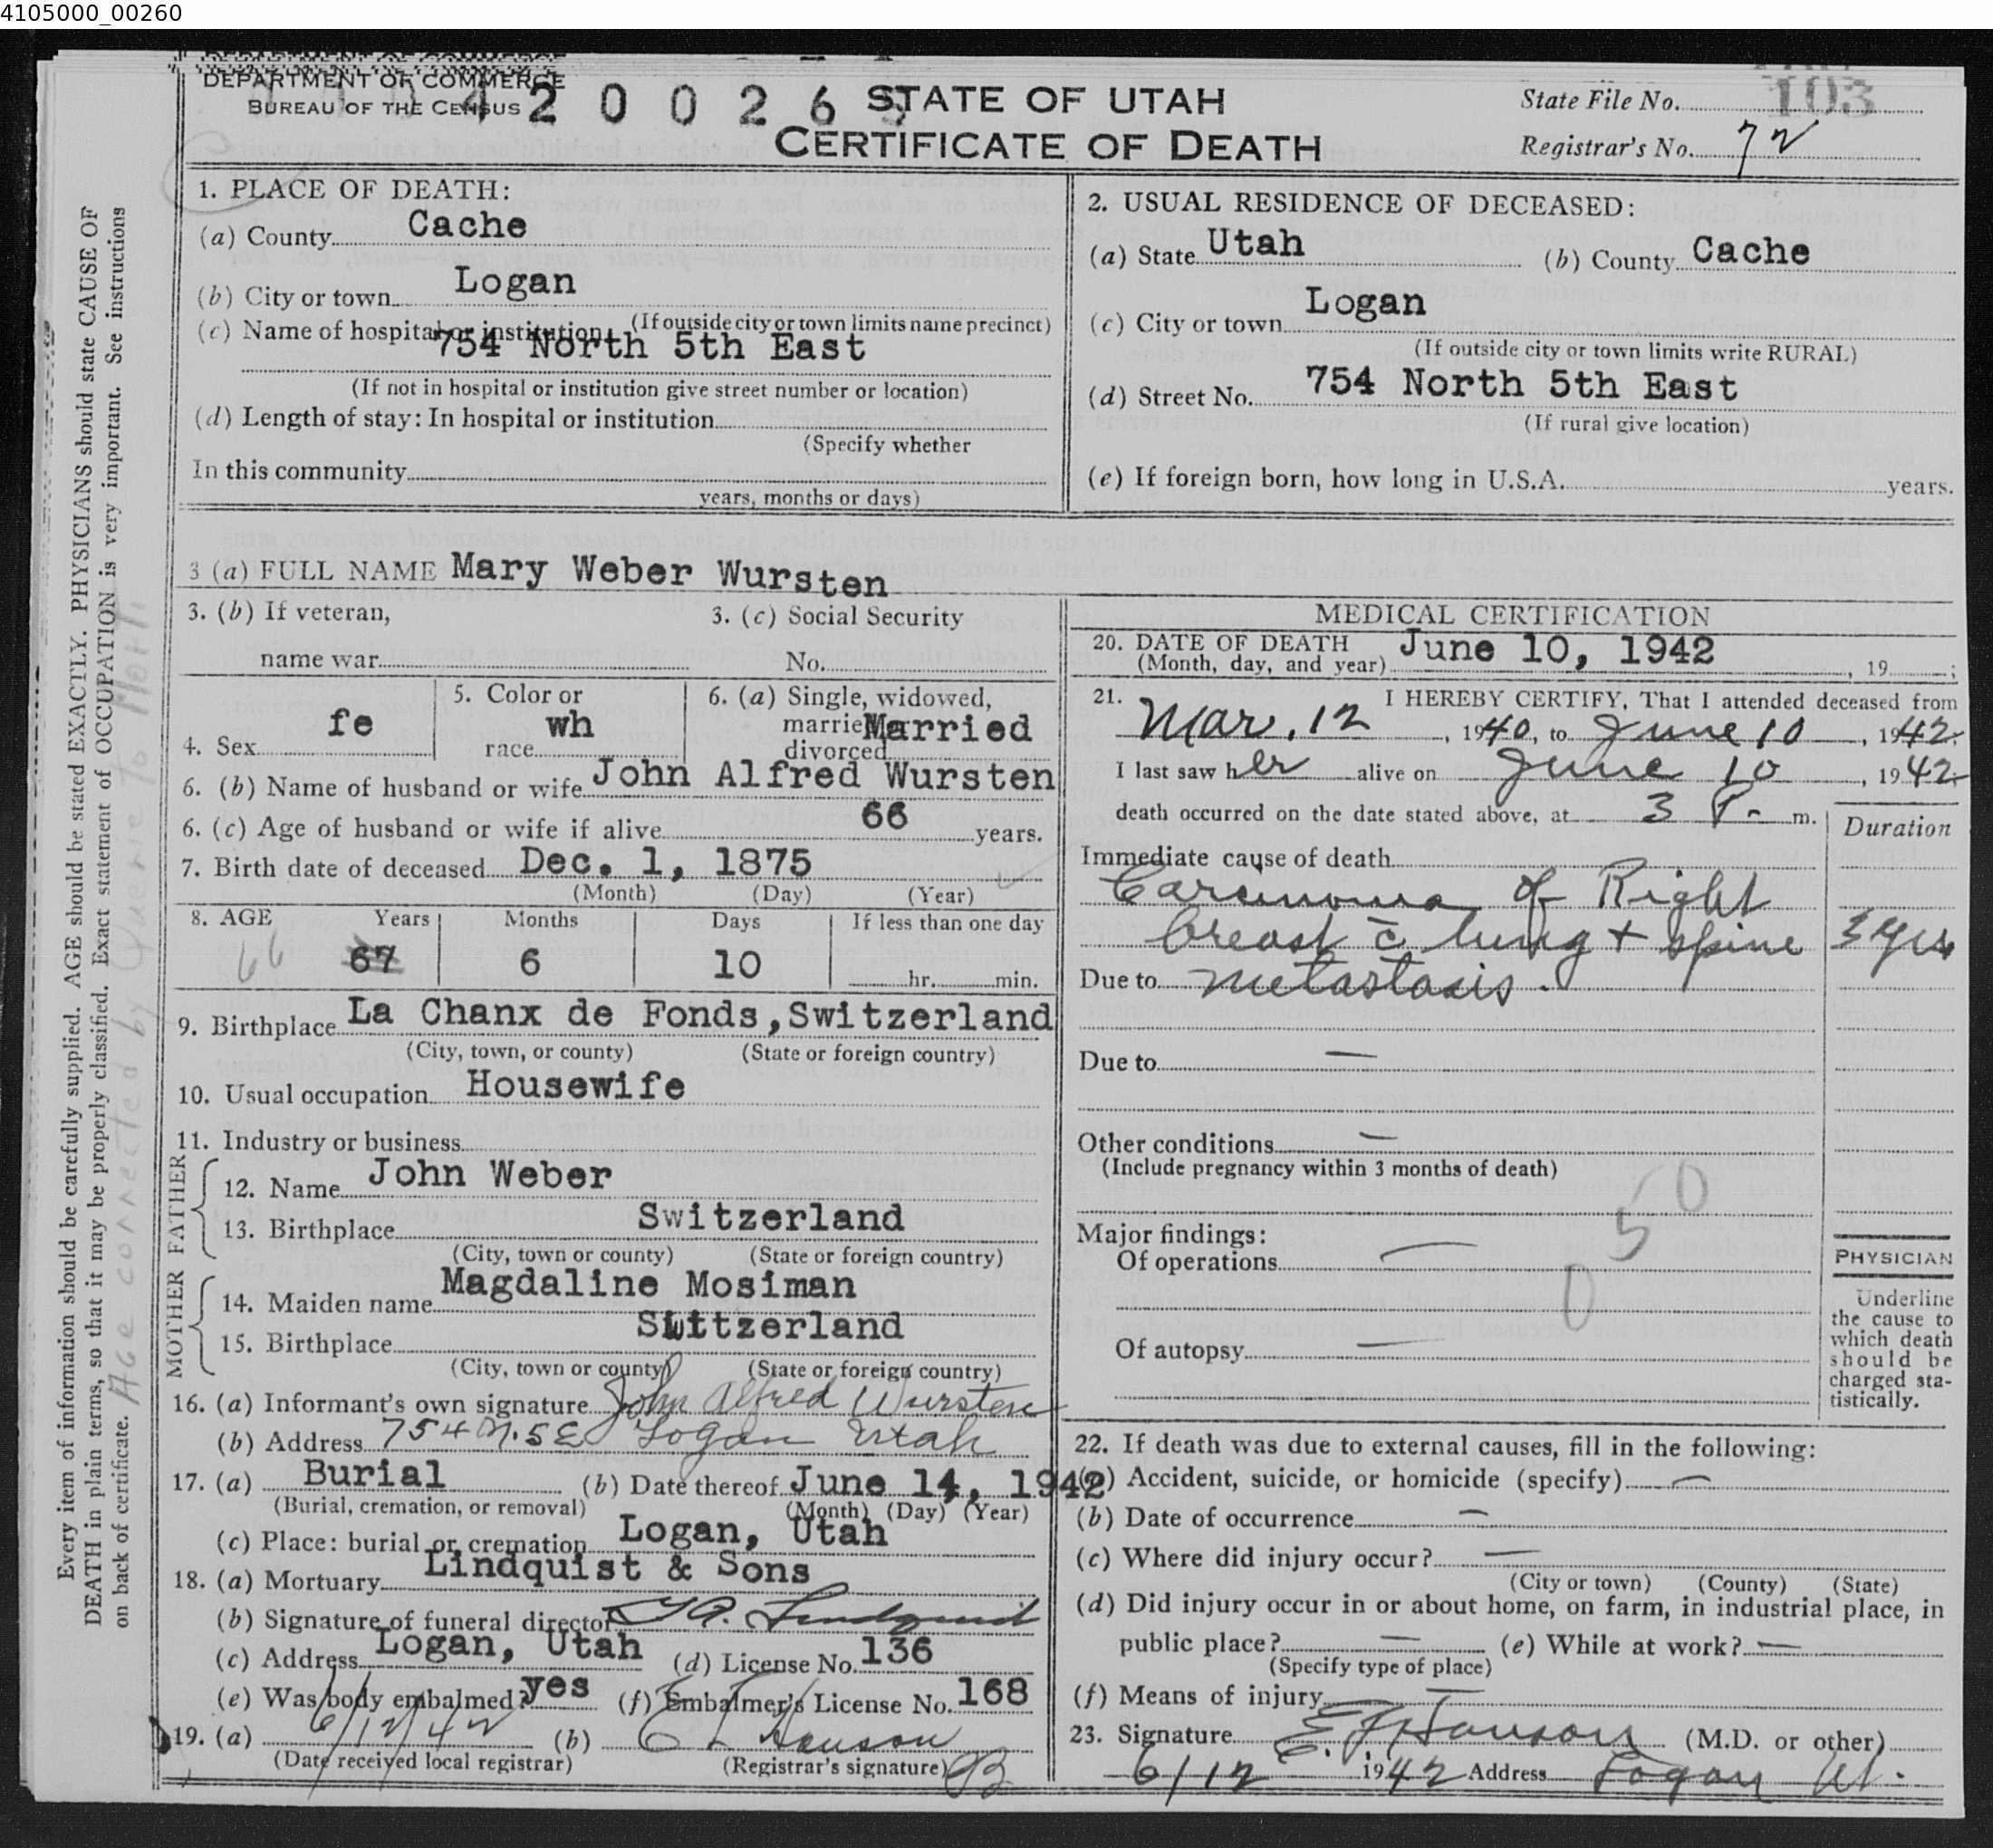 4105000_00260
DEPARTMENT OF COMMERCE
BUREAU OF THE CENSUS
4 2 0 0 2 6
STATE OF UTAH
CERTIFICATE OF DEATH
State File No. 103
Registrar's No. 72
1. PLACE OF DEATH:
(a) County Cache
(b) City or town Logan
(If outside city or town limits name precinct)
(c) Name of hospital or institution
754 North 5th East
(If not in hospital or institution give street number or location)
(d) Length of stay: In hospital or institution
(Specify whether
In this community
years, months or days)
2. USUAL RESIDENCE OF DECEASED:
(a) State Utah (b) County Cache
(c) City or town Logan
(If outside city or town limits write RURAL)
(d) Street No. 754 North 5th East
(If rural give location)
(e) If foreign born, how long in U.S.A. years.
3 (a) FULL NAME Mary Weber Wursten
3. (b) If veteran, 3. (c) Social Security
name war No.
4. Sex fe
5. Color or
race wh
6. (a) Single, widowed,
married Married
divorced
6. (b) Name of husband or wife John Alfred Wursten
6. (c) Age of husband or wife if alive 66 years.
7. Birth date of deceased Dec. 1, 1875
(Month) (Day) (Year)
8. AGE Years Months Days If less than one day
66 67 6 10 hr. min.
9. Birthplace La Chanx de Fonds, Switzerland
(City, town, or county) (State or foreign country)
10. Usual occupation Housewife
11. Industry or business
FATHER
12. Name John Weber
13. Birthplace Switzerland
(City, town or county) (State or foreign country)
MOTHER
14. Maiden name Magdaline Mosiman
15. Birthplace Switzerland
(City, town or county) (State or foreign country)
16. (a) Informant's own signature John Alfred Wursten
(b) Address 754 N. 5 E Logan Utah
17. (a) Burial (b) Date thereof June 14, 1942
(Burial, cremation, or removal) (Month) (Day) (Year)
(c) Place: burial or cremation Logan, Utah
18. (a) Mortuary Lindquist & Sons
(b) Signature of funeral director Lindquist
(c) Address Logan, Utah (d) License No. 136
(e) Was body embalmed? yes (f) Embalmer's License No. 168
19. (a) 6/12/42 (b) Hanson
(Date received local registrar) (Registrar's signature)
MEDICAL CERTIFICATION
20. DATE OF DEATH June 10, 1942
(Month, day, and year) , 19 ;
21. I HEREBY CERTIFY, That I attended deceased from
Mar. 12, 1940, to June 10, 1942;
I last saw her alive on June 10, 1942;
death occurred on the date stated above, at 3 P. m.
Duration
Immediate cause of death
Carcinoma of Right
breast c̄ lung + spine 3 yrs
Due to metastasis.
Due to —
Other conditions —
(Include pregnancy within 3 months of death)
50
0
Major findings:
Of operations —
Of autopsy —
PHYSICIAN
Underline
the cause to
which death
should be
charged sta-
tistically.
22. If death was due to external causes, fill in the following:
(a) Accident, suicide, or homicide (specify) —
(b) Date of occurrence —
(c) Where did injury occur? —
(City or town) (County) (State)
(d) Did injury occur in or about home, on farm, in industrial place, in
public place? — (e) While at work? —
(Specify type of place)
(f) Means of injury —
23. Signature Hanson (M.D. or other)
6/12 1942 Address Logan Ut.
Every item of information should be carefully supplied. AGE should be stated EXACTLY. PHYSICIANS should state CAUSE OF
DEATH in plain terms, so that it may be properly classified. Exact statement of OCCUPATION is very important. See instructions
on back of certificate.
Age corrected by Querie to Mort.